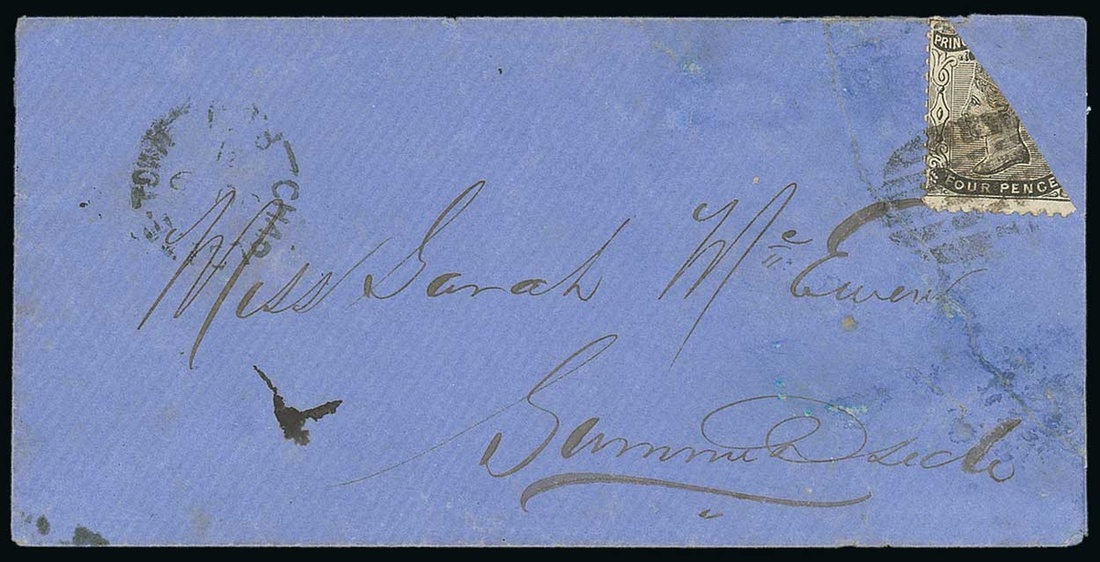 PRIN
FOUR PENCE
TOWN CHAR
Miss Sarah Mc Ewen
Summerside